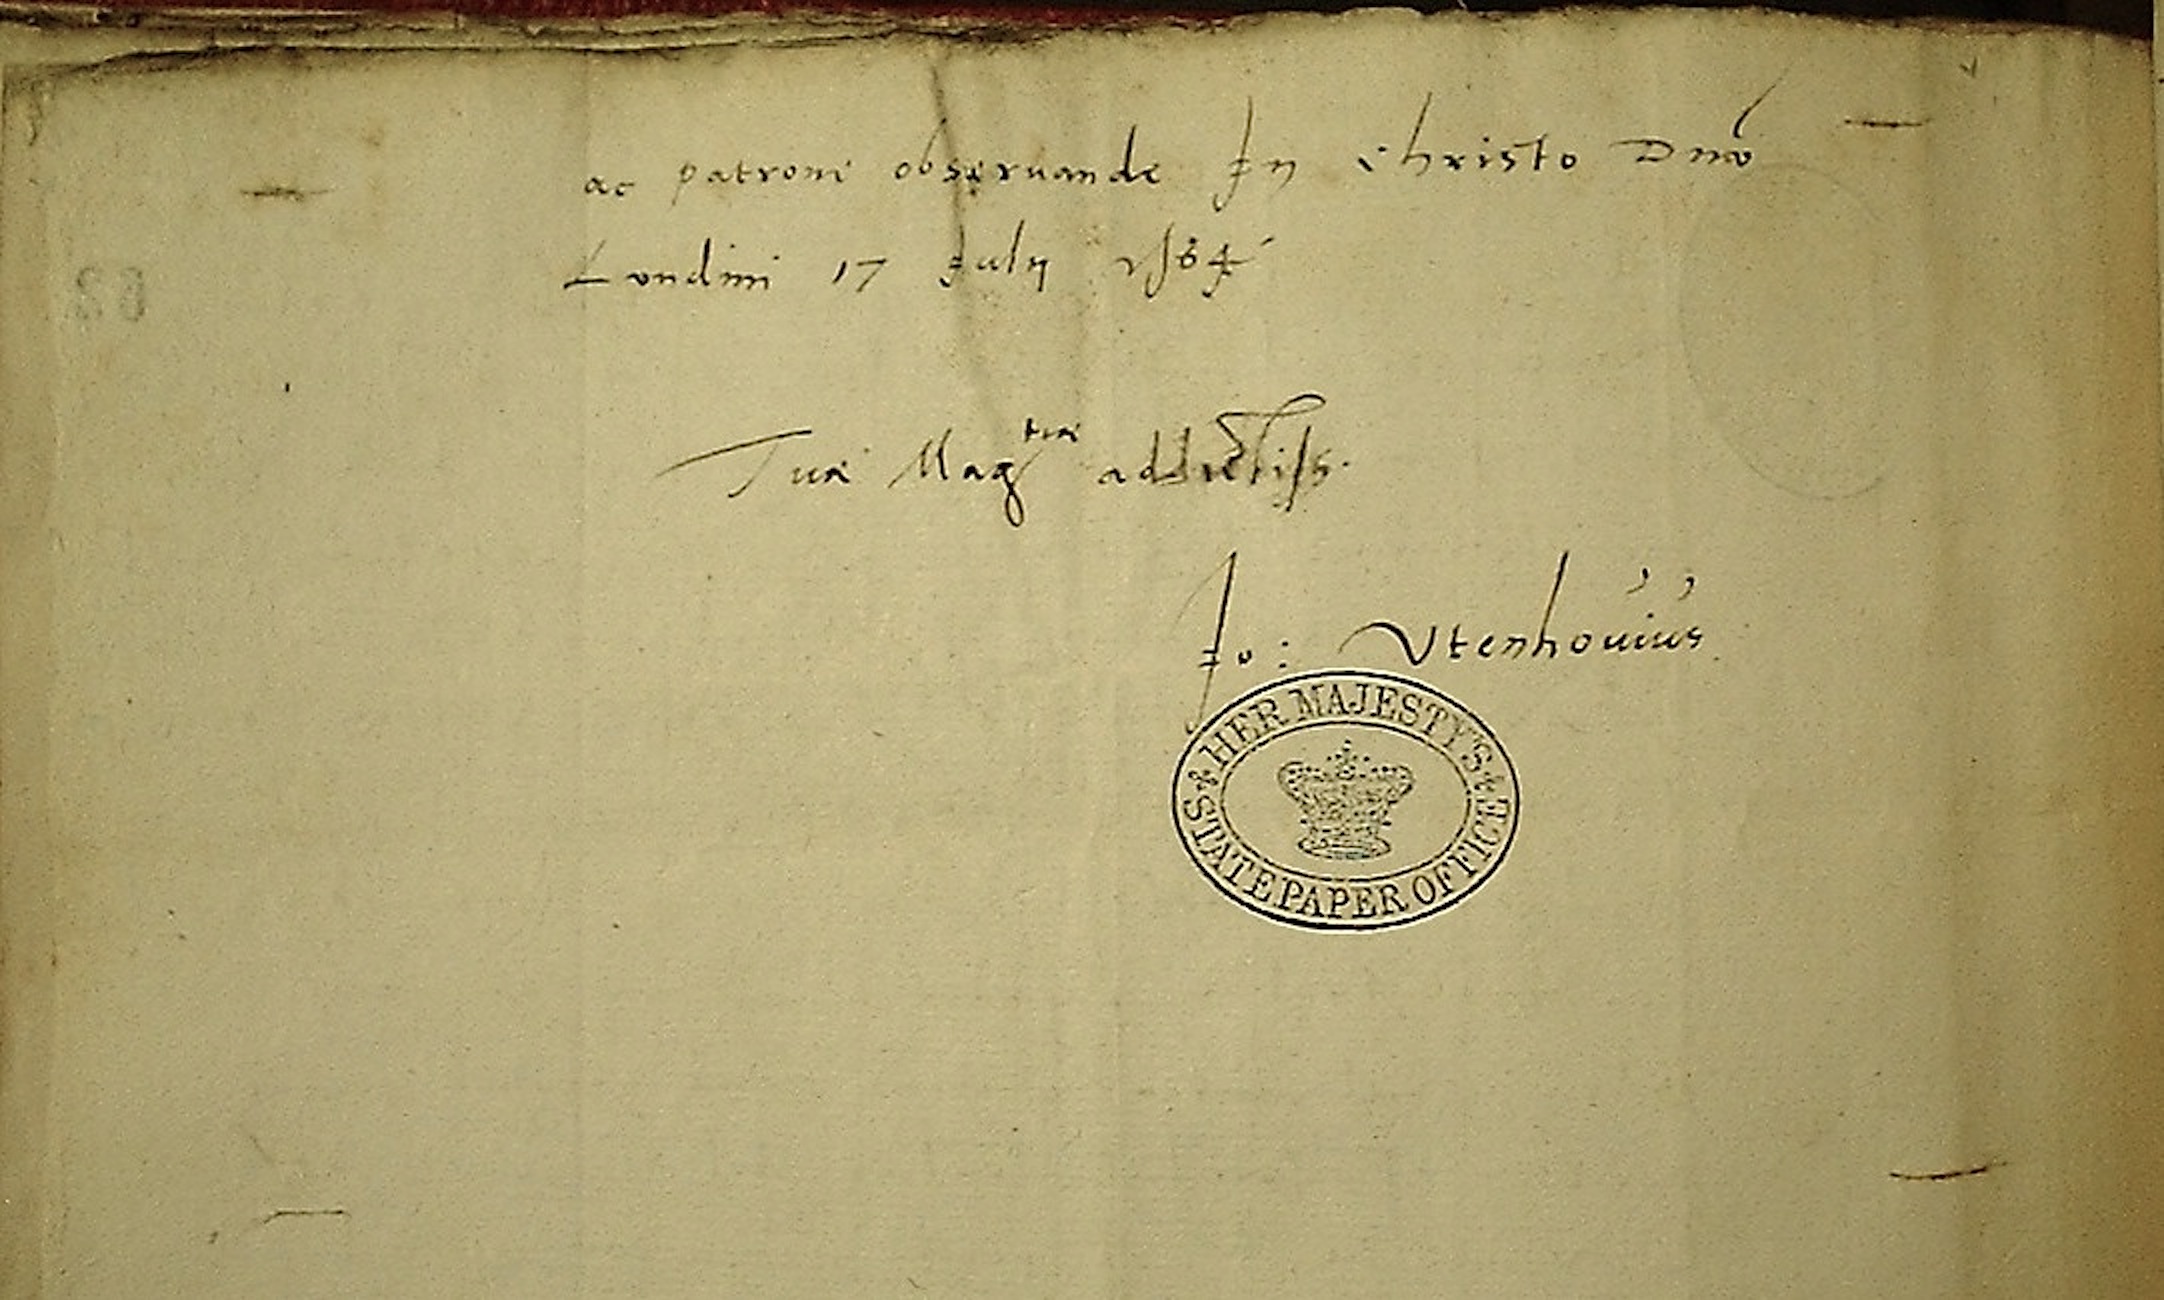 ac patrone observande In Christo Dno
Londini 17 Julij 1564
Tuæ Mag^tiæ addictiss.
Jo: Vtenhouius
HER MAJESTY'S
STATE PAPER OFFICE